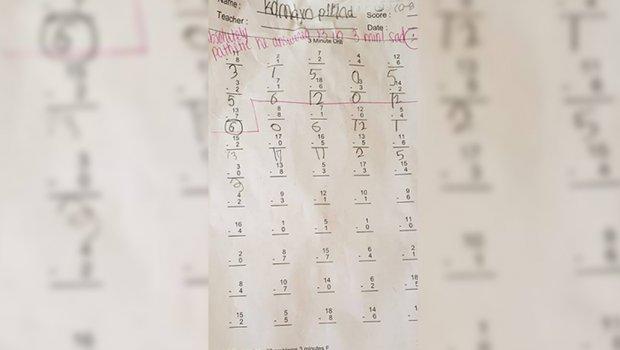 Name :
Teacher :
Score :
Date :
Absolutely
pathetic he answered 13 in 3 min! sad
3 Minute
2 7 4 12
- 8 - 1 - 2 - 4 - 6
3 1 5 0 5
3 7 18 3 14
- 2 - 1 - 6 - 3 - 2
5 6 12 0 12
13 8 7 12 5
- 7 - 8 - 1 - 0 - 4
6 0 6 12 1
15 17 16 13 11
- 2 - 0 - 5 - 5 - 6
13 17 11 2 5
3 13 5 17 15
- 0 - 8 - 3 - 3 - 4
3
4 9 12 10 9
- 2 - 3 - 1 - 1 - 6
16 1 5 1 11
- 4 - 0 - 1 - 0 - 0
2 8 15 6 2
- 0 - 7 - 7 - 4 - 1
8 10 14 6 18
- 4 - 7 - 0 - 2 - 5
15 5 18 14 1
- 2 - 5 - 8 - 6 -